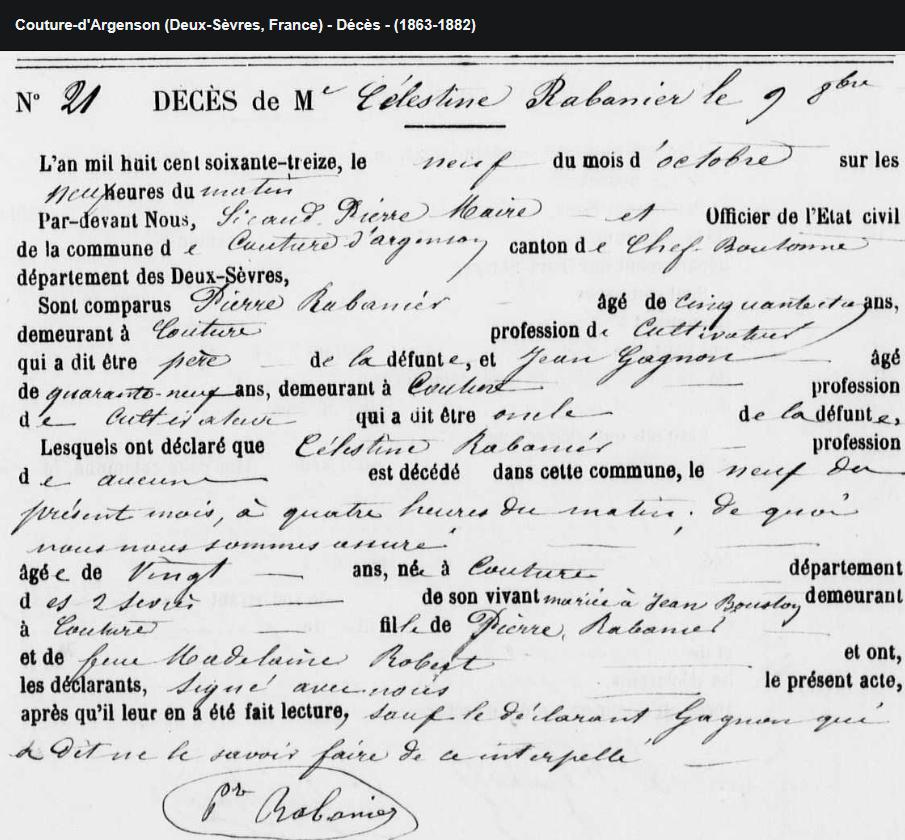 Couture-d'Argenson (Deux-Sèvres, France) - Décès - (1863-1882)
N° 21 DECÈS de Mʳ Célestine Rabanier le 9 8bre
L'an mil huit cent soixante-treize, le neuf du mois d'octobre sur les
neuf heures du matin
Par-devant Nous, Sicaud Pierre Maire et Officier de l'Etat civil
de la commune de Couture d'argenson canton de Chef-Boutonne
département des Deux-Sèvres,
Sont comparus Pierre Rabanier âgé de ans,
demeurant à Couture profession de Cultivateur
qui a dit être père de la défunte, et Jean Gagnon âgé
de quarante-neuf ans, demeurant à Couture profession
de Cultivateur qui a dit être oncle de la défunte,
Lesquels ont déclaré que Célestine Rabanier profession
de aucune est décédé dans cette commune, le neuf du
présent mois, à quatre heures du matin; de quoi
nous nous sommes assuré.
âgée de Vingt ans, née à Couture département
des 2 Sevres de son vivant mariée à Jean demeurant
à Couture fille de Pierre Rabanier
et de feue Madelaine Robert et ont,
les déclarants, signé avec nous le présent acte,
après qu'il leur en a été fait lecture, sauf le déclarant Gagnon qui
a Dit ne le savoir faire de ce interpellé
Pre Rabanier